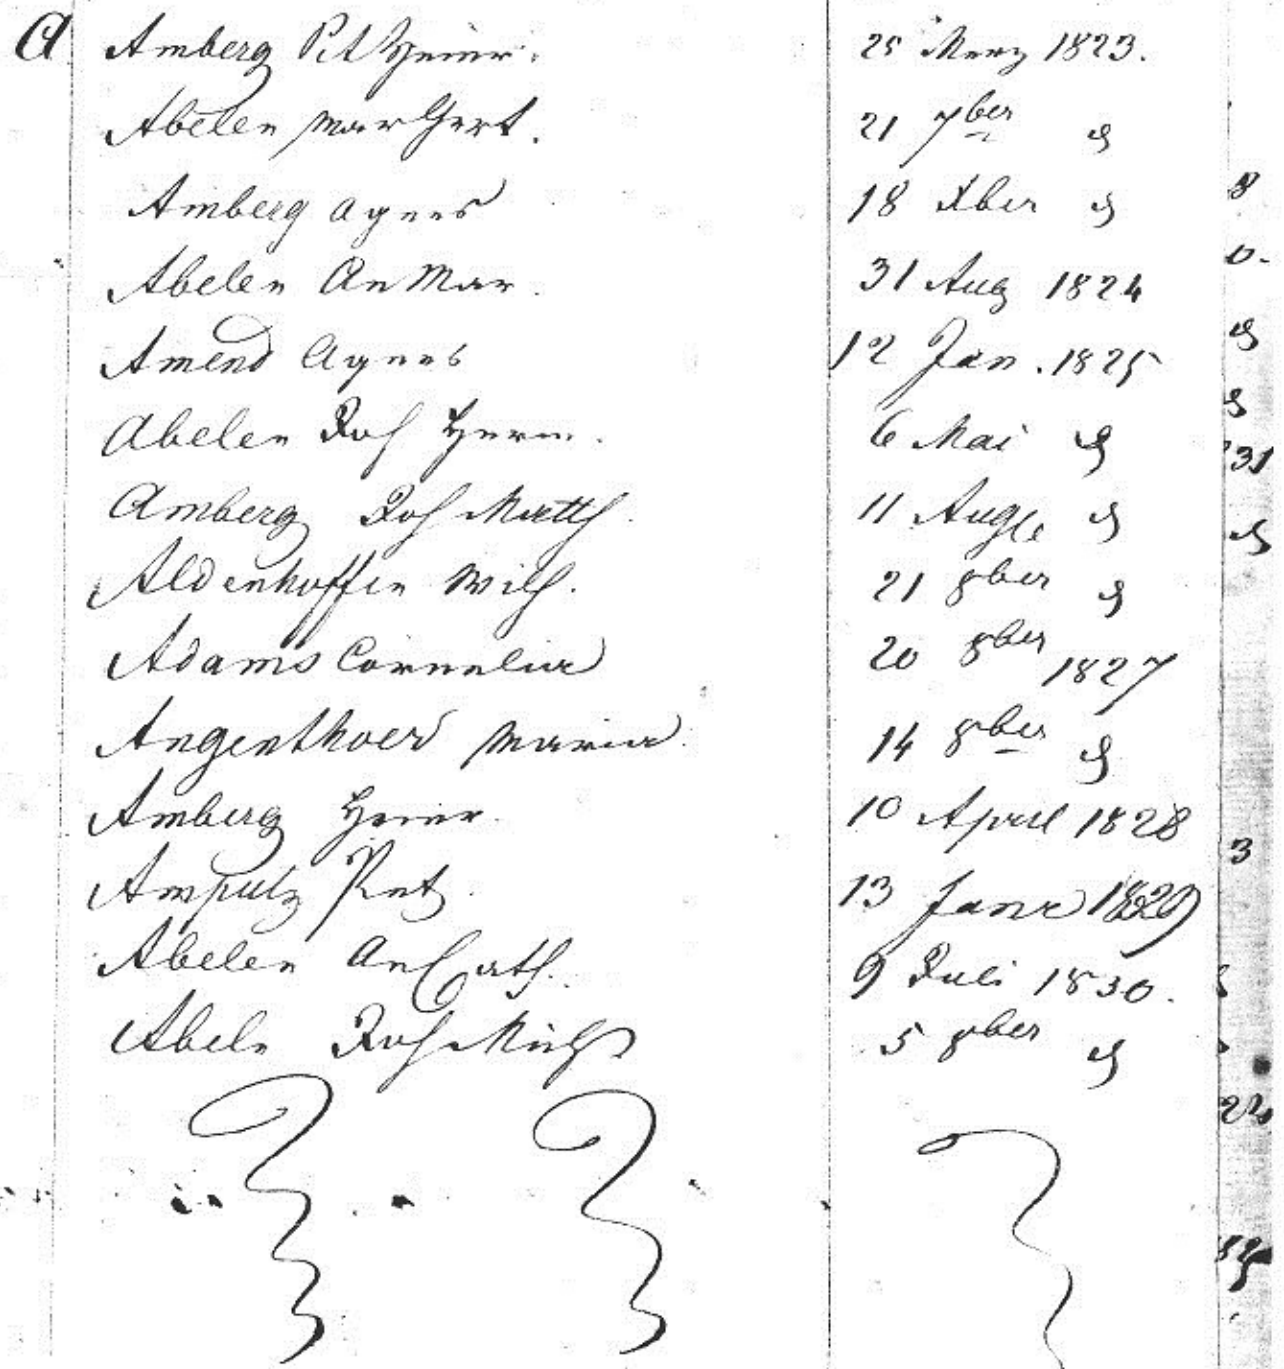 A Amberg Pet Heinr. 25 Merz 1823.
Abelen Mar Gert. 21 7ber d
Amberg Agnes 18 Xber d
Abelen An Mar. 31 Aug 1824
Amend Agnes 12 Jan. 1825
Abelen Joh Herm. 6 Mai d
Amberg Joh Matth. 11 Aug d
Aldenhoffen Wilh. 21 8ber d
Adams Cornelia 20 8ber 1827
Angenthoer Maria 14 8ber d
Amberg Heinr. 10 April 1828
Amputz Pet. 13 Janr 1829
Abelen An Cath. 9 Juli 1830.
Abels Joh Mich 5 8ber d